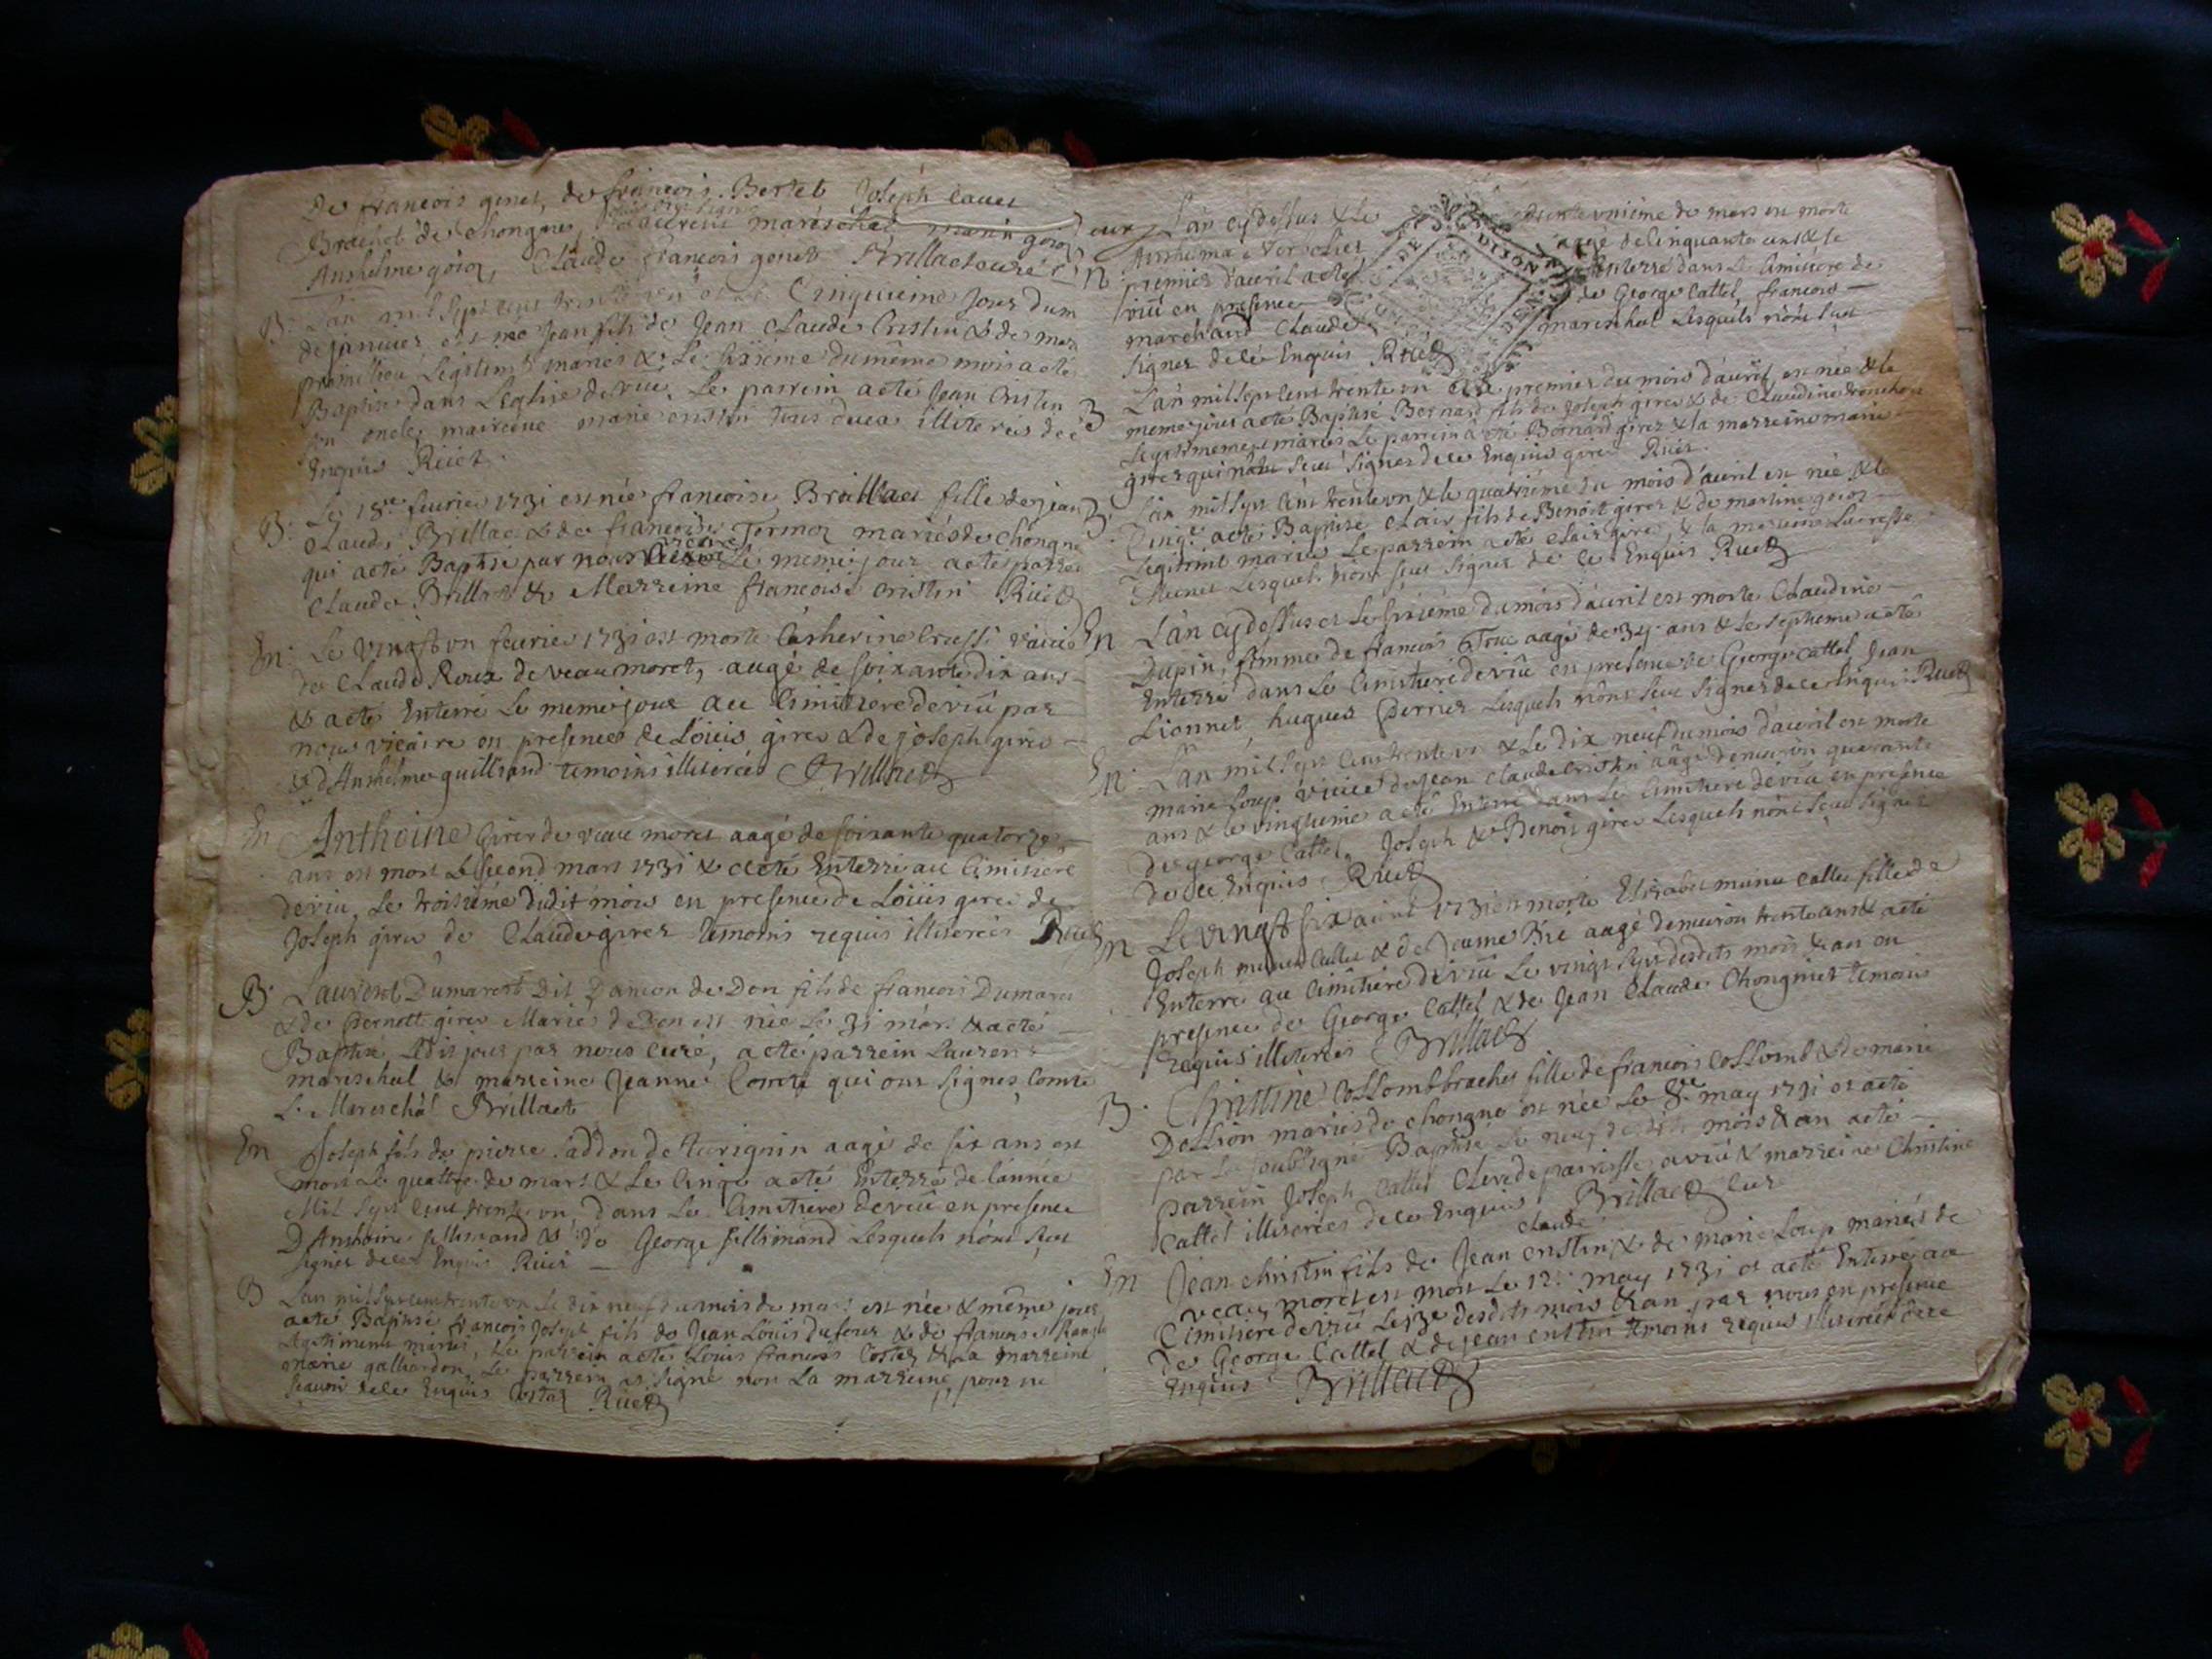 De francois genet, de francois Bertet Joseph Cauet
Brachet de chongnes, Laurent mareschal
Anthelme goioz, Claude francois genet Brillact curé
B. L'an mil sept cent trente un et le Cinquieme jour du m
de janvier est né Jean fils de Jean Claude Cristin & de
Legitim't mariés & Le sixième du même mois a eté
Baptisé dans L'eglise de viü, Le parrein a eté Jean Cristin
son oncle, marreine marie cristin tous deux illiterés de ce
Enquis Rüet
B. Le 18e feurier 1731 est née francoise Brillact fille de jean
Claude Brillac & de francoise Tornoz mariés de chongne
qui a eté Baptisé par nous vicaire Le meme jour a eté parrei
Claude Brillact & Marreine francoise cristin Rüet
En. Le vingt un feurier 1731 est morte Catherine Crussi vueue
de Claude Roux de veau moret, aagé de soixante dix ans
& a eté Enterré Le meme jour au Cimitiere de viû par
nous vicaire en presence de Loüis girer & de joseph girer
& d'Anthelme guilliand temoins illiterés Brillact
En Anthoine Girer de veau moret aagé de soixante quatorze
ans est mort Le second mars 1731 & a eté Enterré au Cimitiere
de viu, Le troisiéme dudit mois en presence de Loüis girer de
Joseph girer de Claude girer temoins requis illiterés Rüet
B. Laurent Dumarest Dit Damon de Don fils de francois Dumares
& de Pernette girer Mariés de Don est née Le 31 mars & a eté
Baptisé Ledit jour par nous curé, a eté parrein Laurens
mareschal & marreine Jeanne Comte qui ont signés, Comte
L. Mareschal Brillact
En Joseph fils de pierre saddon de turignin aagé de six ans est
mort Le quattre de mars & Le Cinq a eté Enterré de l'année
Mil sept cent trente un dans Le Cimitiere de viû en presence
D'Anthoine fillimand & de George fillimand Lesquels n'ont sceu
signer de ce Enquis Rüet
B L'an mil sept cent trente un Le dix neuf du mois de mars est née & même jour
a eté Baptisé francois Joseph fils de Jean Loüis Dufour & de francoise
Legitimement mariés, Le parrein a eté Louis francois Costaz & La marreine
marie galliardon, Le parrein as signé non La marreine pour ne
scauoir de ce Enquis Costaz Rüet
En L'an cy dessus & le trente unième de mars est morte
Anthelma Vercher aagé de Cinquante ans & le
premier d'auril a eté Enterré dans Le Cimitiere de
viû en presence de George Cattel, francois
marchand Claude mareschal Lesquels n'ont sceu
signer de ce Enquis Rüet
DIJON
B L'an mil sept cent trente un & le premier du mois d'auril, est née & le
meme jour a eté Baptisé Bernard fils de Joseph girer & de Claudine
Legitimement mariés Le parrein a eté Bernard girer & la marreine marie
girer qui n'ont sceu signer de ce Enquis girer Rüet.
B. L'an mil sept cent trente un & le quatriéme du mois d'auril est née & le
Cinq a eté Baptisé Clair fils de Benoit girer & de martine goioz
Legitim't mariés Le parrein a eté Clair girer, & la marreine Lucresse
Meunet Lesquels n'ont sceu signer de ce Enquis Rüet
En L'an cy dessus et Le sixiéme du mois d'auril est morte Claudine
Dupin, femme de francois Troc aagé de 34 ans & Le septieme a eté
Enterré dans Le Cimitiere de viû en presence de George Cattel, Jean
Lionnet, hugues Perrier Lesquels n'ont sceu signer de ce Enquis Rüet
En. L'an mil sept cent trente un & Le dix neuf du mois d'auril est morte
marie Loup vueue de Jean Claude Cristin aagé d'enuiron quarante
ans & le vingtieme a eté Enterré dans Le Cimitiere de viû en presence
de george Cattel, Joseph & Benoit girer Lesquels n'ont sceu signer
de ce Enquis Rüet
En Le vingt six auril 1731 est morte Elizabet Cattel fille de
Joseph Cattel & de Jeanne Bré aagé d'enuiron trente ans & a eté
Enterré au Cimitiere de viû Le vingt sept desdits mois & an en
presence de George Cattel & de Jean Claude Chongnier temoins
requis illiterés Brillact
B. Christine Collomb brachet fille de francois Collomb & de marie
Dellion mariés de chongne est née Le 8e may 1731 et a eté
par Le soubsigné Baptisé Le neuf desdits mois & an a eté
parrein Joseph Cattel Clerc de pairoisse a viû & marreine Christine
Cattel illiterés de ce Enquis Brillact cur
En Jean christin fils de Jean Claude cristin & de marie Loup mariés de
veau moret est mort Le 12e may 1731 et a eté Enterré au
Cimitiere de viû Le 13e desdits mois & an par nous en presence
de George Cattel & de jean cristin temoins requis illiterés de ce
Enquis Brillact